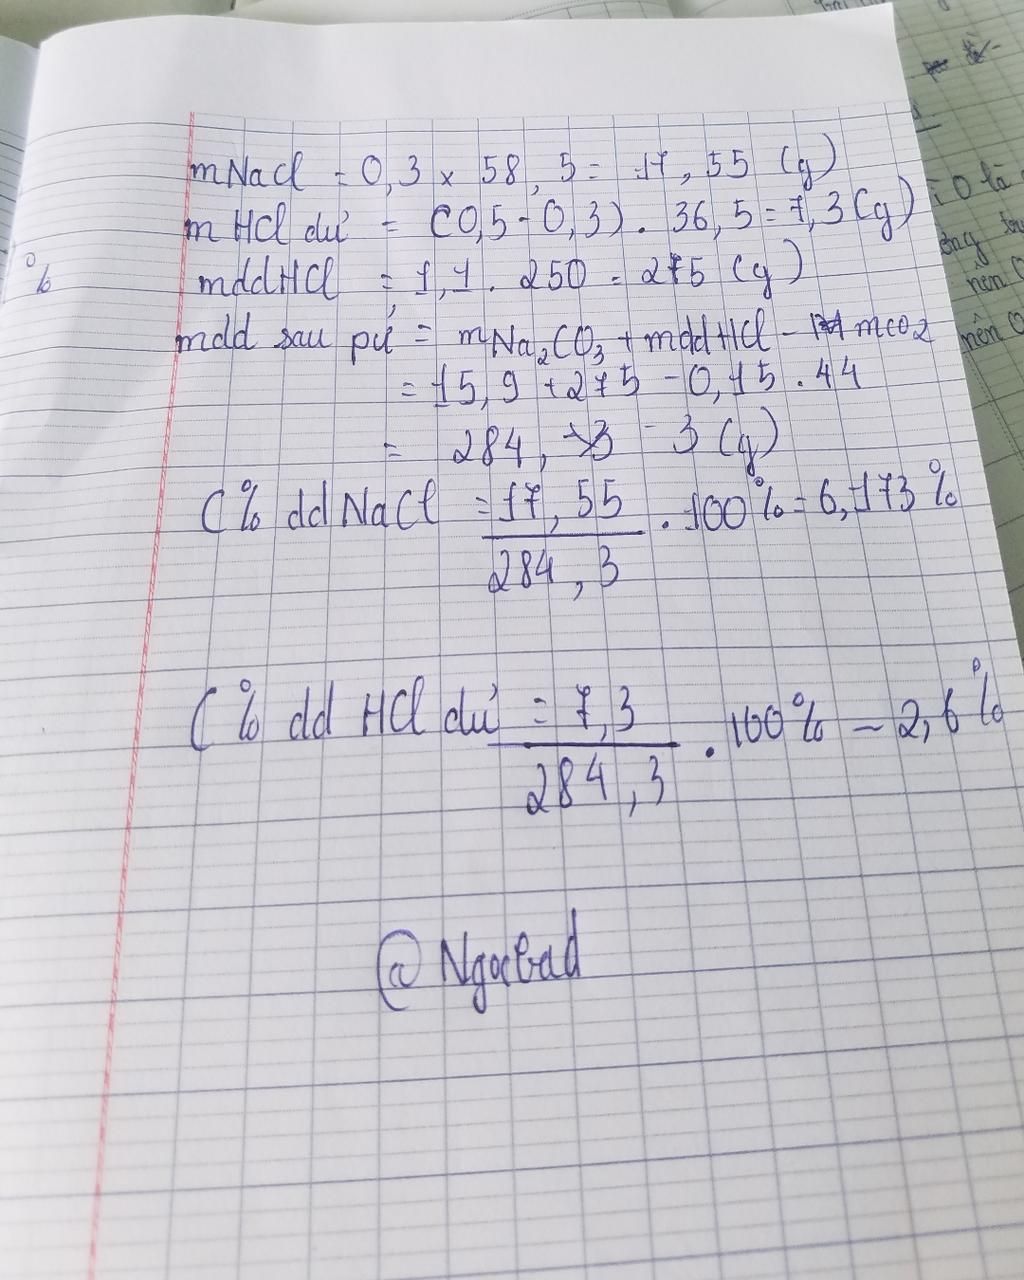 mNaCl = 0,3 x 58,5 = 17,55 (g)
m HCl dư = (0,5 - 0,3). 36,5 = 7,3 (g)
mddHCl = 1,1. 250 = 275 (g)
mdd sau pứ = mNa₂CO₃ + mddHCl - mCO₂
= 15,9 + 275 - 0,15 . 44
= 284, 3 (g)
C% dd NaCl = 17,55 / 284,3 . 100% = 6,173%
C% dd HCl dư = 7,3 / 284,3 . 100% = 2,6%
@ Ngocbad
%
i O là
nên
nên